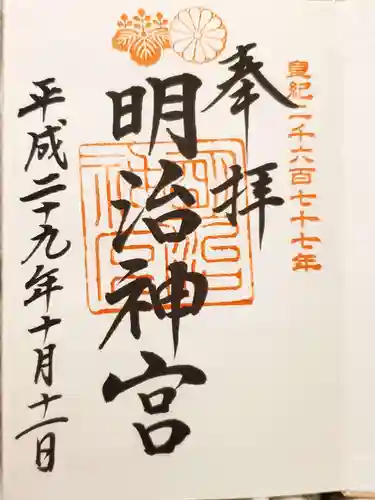 皇紀二千六百七十七年
奉拝
明治神宮
平成二十九年十月十一日